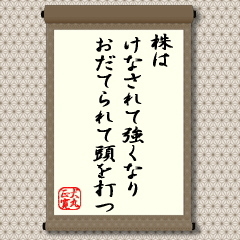 株は
けなされて強くなり
おだてられて頭を打つ
大丸
正實